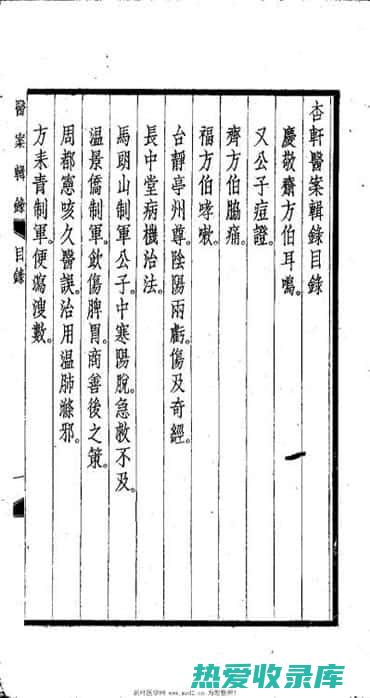 杏軒醫案輯錄目錄
慶敬齋方伯耳鳴。
又公子痘證。
齊方伯脇痛。
福方伯哮嗽。
台靜亭州尊。陰陽兩虧。傷及奇經。
長中堂病機治法。
馬朗山制軍公子。中寒陽脫。急救不及。
温景僑制軍。飲傷脾胃。商善後之策。
周都憲咳久醫誤。治用温肺滌邪。
方耒青制軍。便瀉溲數。
醫案輯錄 目錄 一
热爱收录库